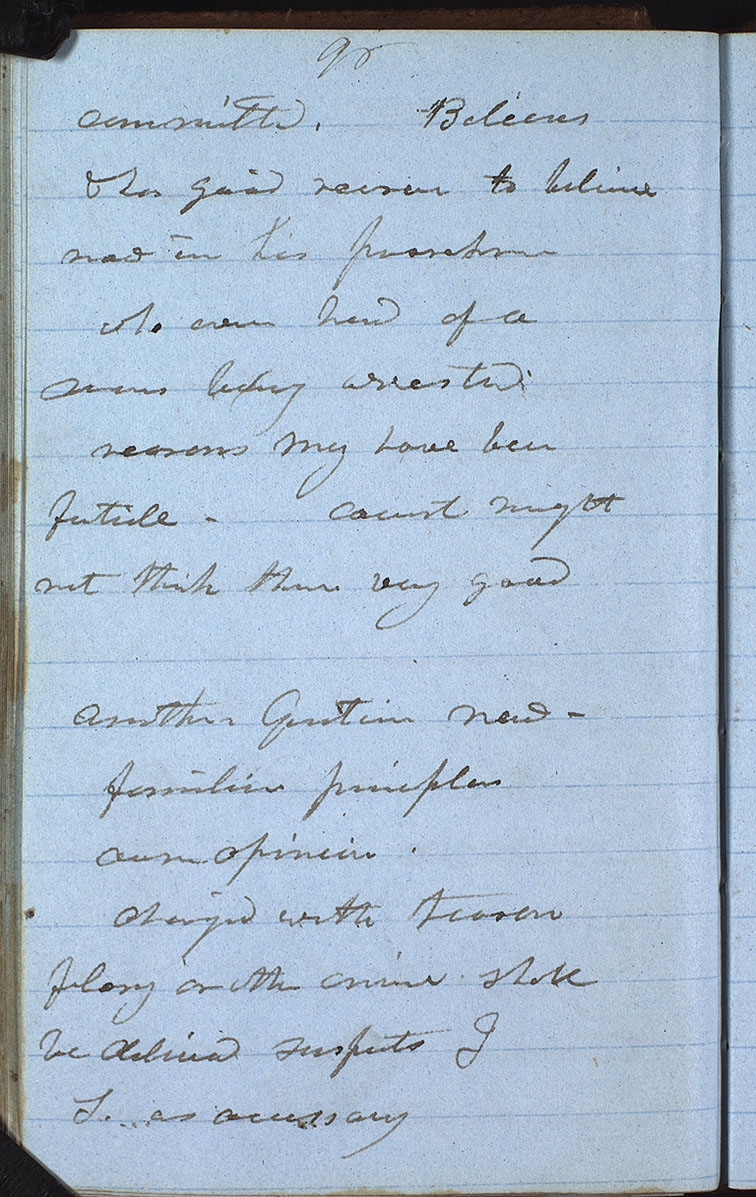 committed. Believes
& has good reason to believe
now in his possession
who ever heard of a
man being arrested
reasons may have been
futile - court might
not think them very good
another Question now -
familiar principles
own opinion.
charged with treason
felony or other crime shall
be delivered suspects J
L. as accessory